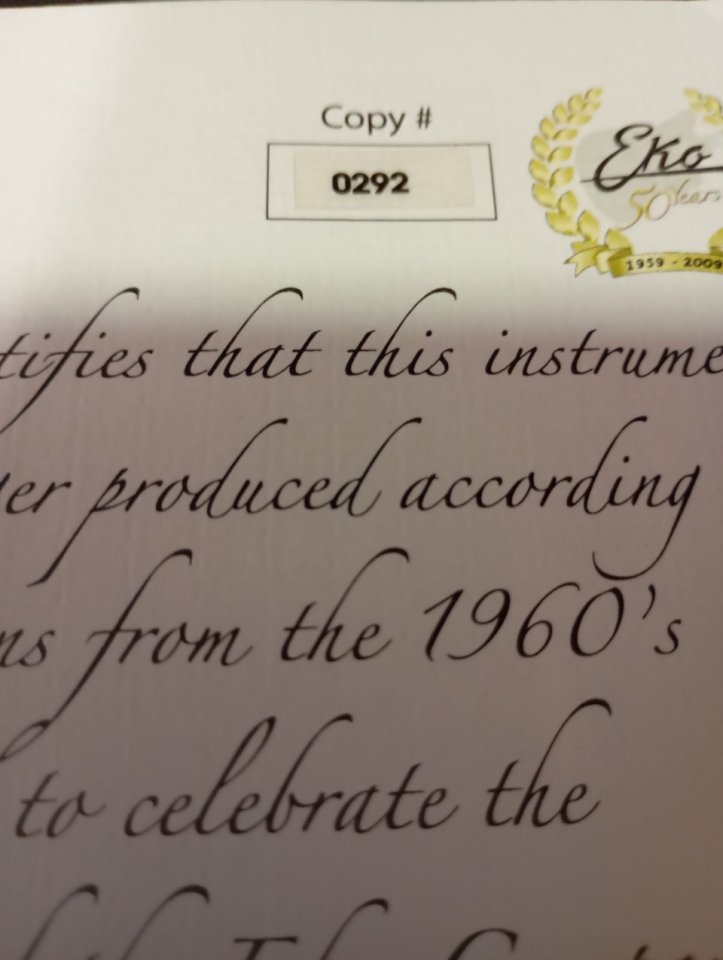 Copy #
0292
Eko
50 Years
1959 - 2009
tifies that this instrume
er produced according
ns from the 1960's
to celebrate the